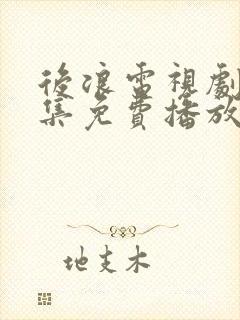 後浪雷視劇
集免費播放
地支木